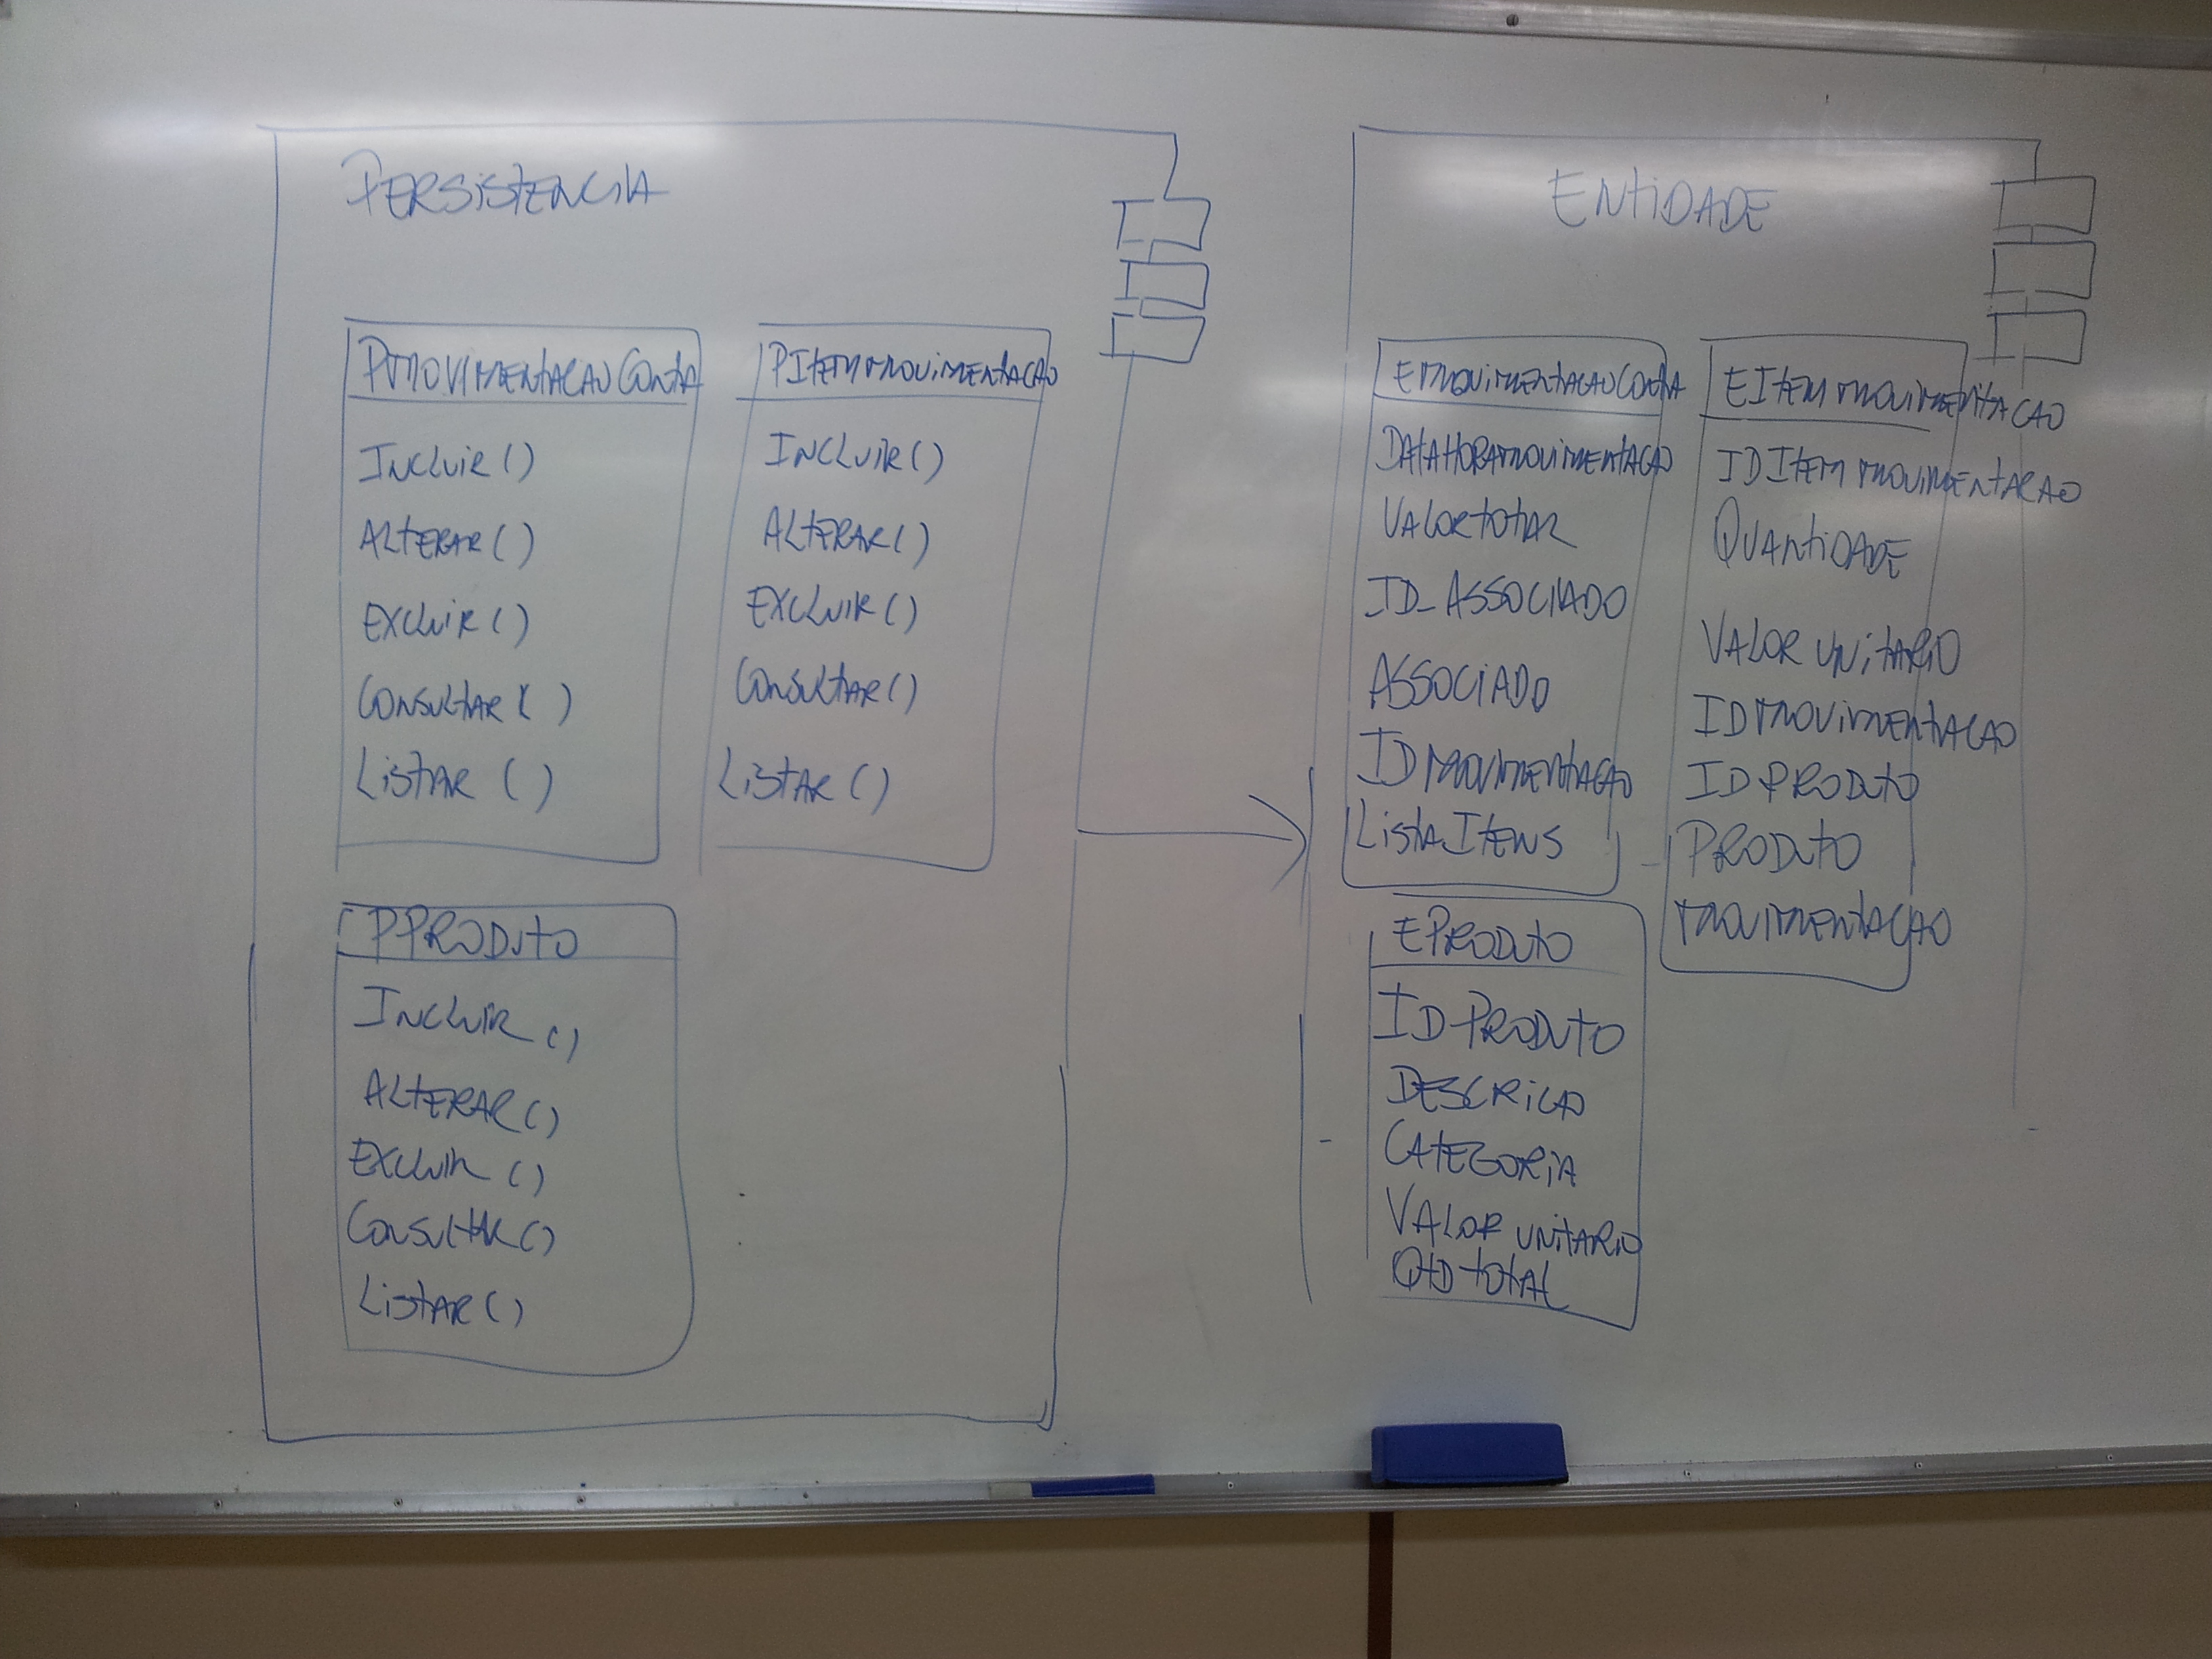 PERSISTENCIA
PMOVIMENTACAOCONTA
INCLUIR()
ALTERAR()
EXCLUIR()
CONSULTAR( )
LISTAR ()
PITEMMOVIMENTACAO
INCLUIR()
ALTERAR()
EXCLUIR()
CONSULTAR()
LISTAR ()
PPRODUTO
INCLUIR ()
ALTERAR()
EXCLUIR ()
CONSULTAR()
LISTAR()
ENTIDADE
EMOVIMENTACAOCONTA
DATAHORAMOVIMENTACAO
VALORTOTAL
ID_ASSOCIADO
ASSOCIADO
IDMOVIMENTACAO
LISTAITENS
EITEMMOVIMENTACAO
IDITEMMOVIMENTACAO
QUANTIDADE
VALOR UNITARIO
IDMOVIMENTACAO
IDPRODUTO
PRODUTO
MOVIMENTACAO
EPRODUTO
IDPRODUTO
DESCRICAO
CATEGORIA
VALOR UNITARIO
QTDTOTAL